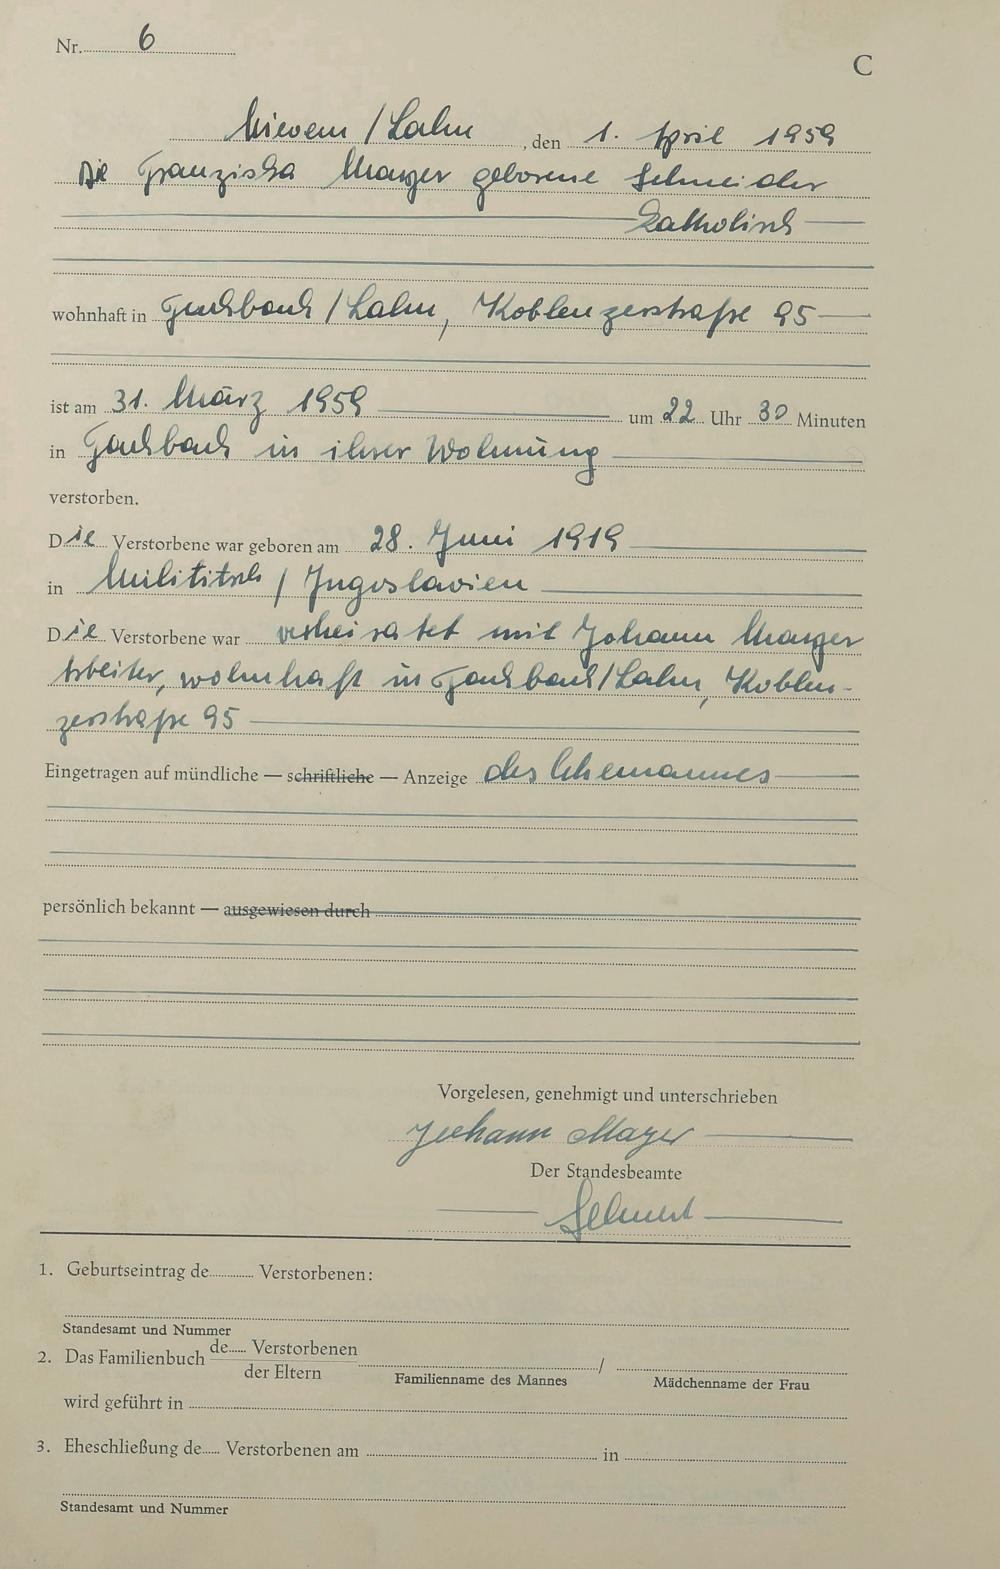 Nr. 6
C
Nievern / Lahn, den 1. April 1959
Die Franziska Mayer geborene Schneider
katholisch
wohnhaft in Fachbach / Lahn, Koblenzerstraße 95
ist am 31. März 1959 um 22 Uhr 30 Minuten
in Fachbach in ihrer Wohnung
verstorben.
Die Verstorbene war geboren am 28. Juni 1919
in Milititsch / Jugoslavien
Die Verstorbene war verheiratet mit Johann Mayer
Arbeiter, wohnhaft in Fachbach/Lahn, Koblen-
zerstraße 95
Eingetragen auf mündliche — schriftliche — Anzeige des Ehemannes
persönlich bekannt — ausgewiesen durch
Vorgelesen, genehmigt und unterschrieben
Johann Mayer
Der Standesbeamte
1. Geburtseintrag de Verstorbenen:
Standesamt und Nummer
2. Das Familienbuch de Verstorbenen
der Eltern /
Familienname des Mannes Mädchenname der Frau
wird geführt in
3. Eheschließung de Verstorbenen am in
Standesamt und Nummer